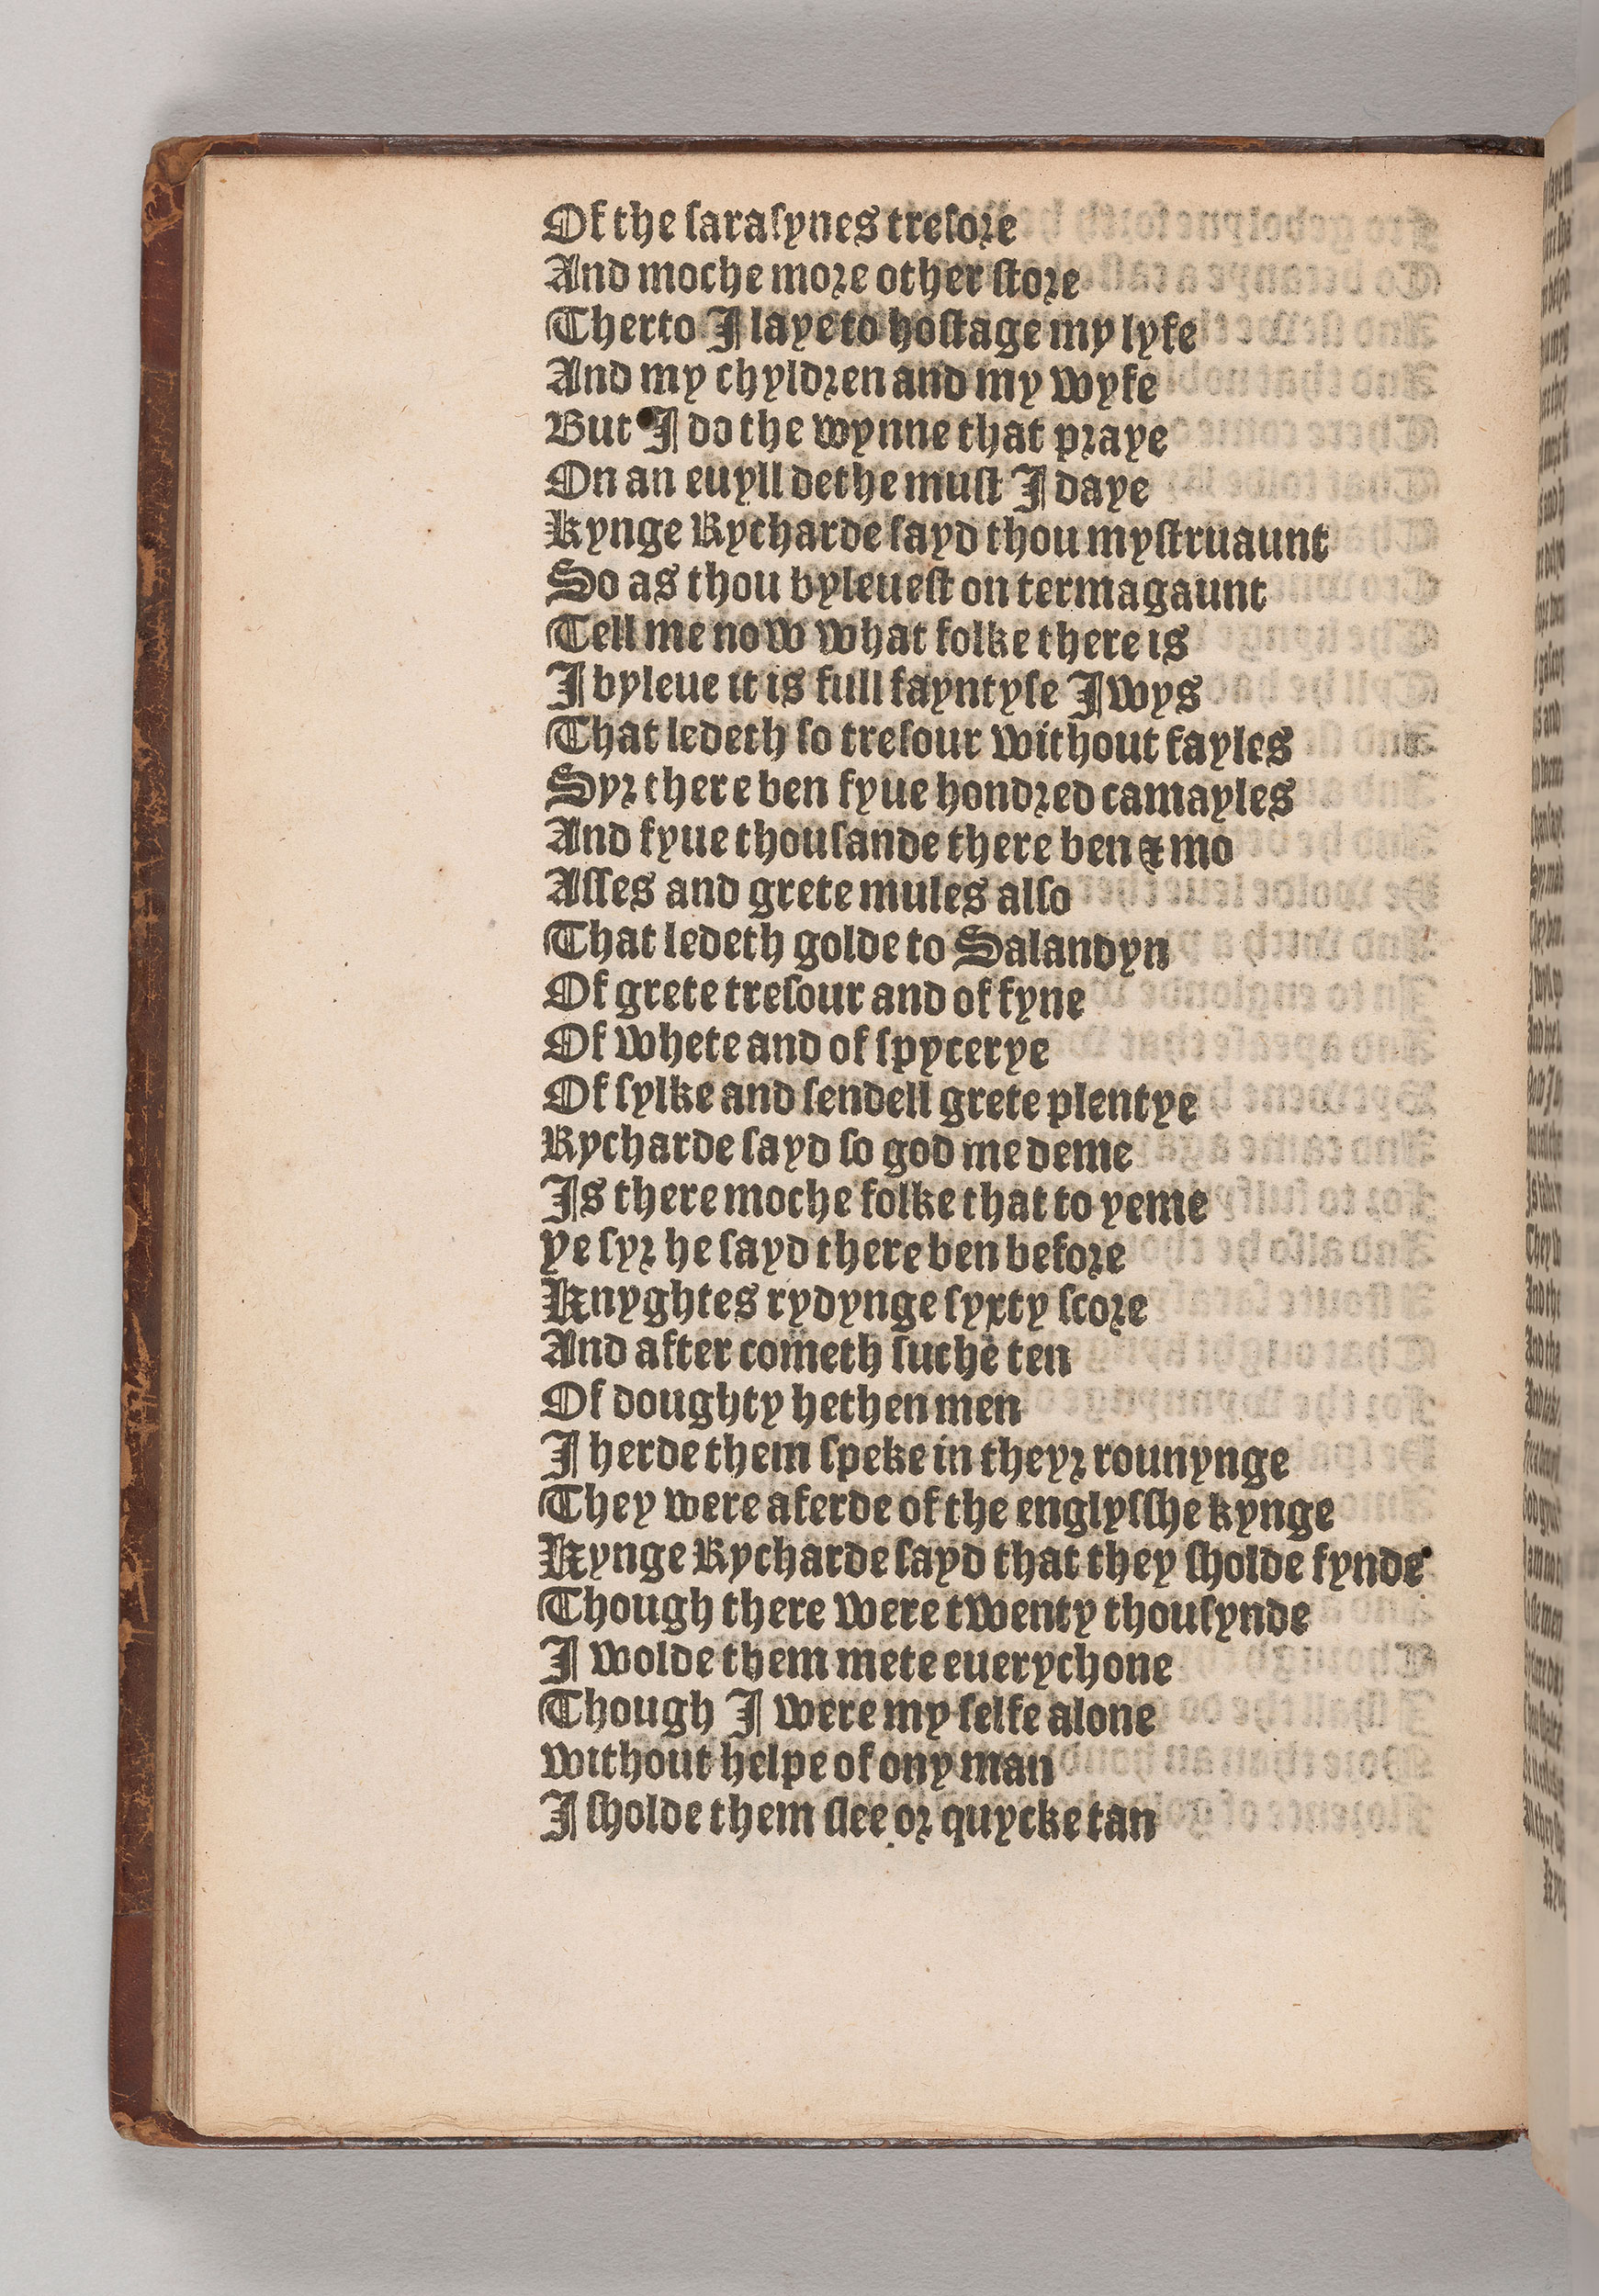 Of the saraſynes treſore
And moche more other ſtore
Therto I laye to hoſtage my lyfe
And my chyldren and my wyfe
But I do the wynne that praye
On an euyll dethe muſt I daye
Kynge Rycharde ſayd thou myſtruaunt
So as thou byleueſt on termagaunt
Tell me now what folke there is
I byleue it is full fayntyſe I wys
That ledeth ſo treſour without fayles
Syr there ben fyue hondred camayles
And fyue thouſande there ben & mo
Aſſes and grete mules alſo
That ledeth golde to Salandyn
Of grete treſour and of fyne
Of whete and of ſpycerye
Of ſylke and ſendell grete plentye
Rycharde ſayd ſo god me deme
Is there moche folke that to yeme
ye ſyr he ſayd there ben before
Knyghtes rydynge ſyxty ſcore
And after cometh ſuche ten
Of doughty hethen men
I herde them ſpeke in theyr rounynge
They were aferde of the englyſſhe kynge
Kynge Rycharde ſayd that they ſholde fynde
Though there were twenty thouſynde
I wolde them mete euerychone
Though I were my ſelfe alone
without helpe of ony man
I ſholde them ſlee or quycke tan